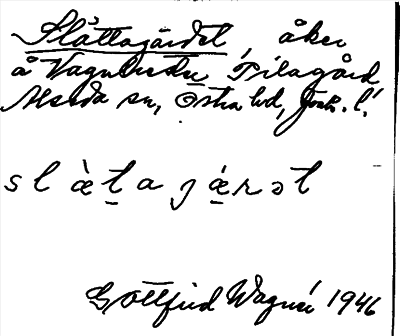 Slåttagärdet, åker
å Vagnbredu Pilagård
Alseda sn, Östra hd, Jönk. l.
s l æ̀ t a j ǽ r ə t
Gottfrid Wagnér 1946